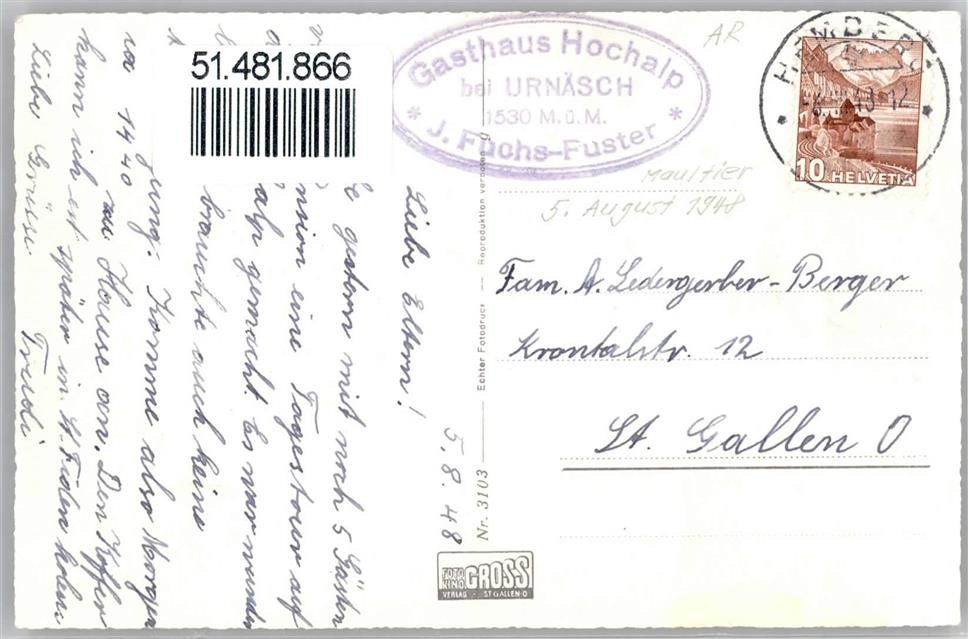 51.481.866
Gasthaus Hochalp
bei URNÄSCH
1530 M.ü.M.
* J. Fuchs-Fuster *
AR
HELVETIA
10
Maultier
5. August 1948
Fam. A. Ledergerber-Berger
Krontalstr. 12
St. Gallen O
Nr. 3103
Echter Fotodruck
Reproduktion verboten
FOTO
KINO
GROSS
VERLAG ST. GALLEN-O
5.8.48
Liebe Eltern!
gestern mit noch 5 Gästen
eine Tagestour auf
alp gemacht. Es war wunder
brauchte auch keine
Komme also Morgen
14 40 zu Hause an. Den Koffer
kann ich erst später in St. Fiden holen.
Liebe Grüsse. Trudi